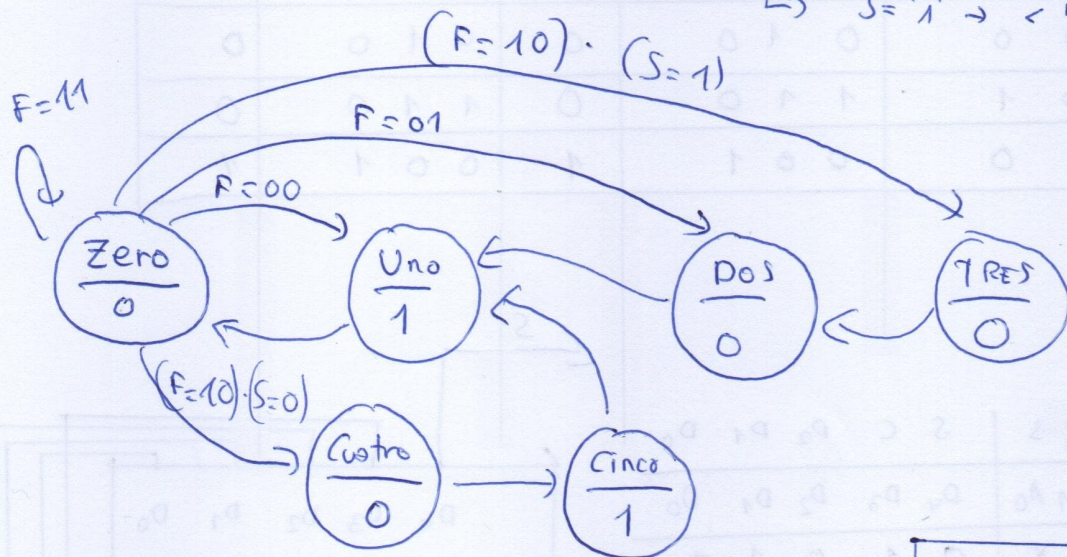 S=1 →
(F=10)· (S=1)
F=11
F=01
F=00
Zero
0
Uno
1
DOS
0
TRES
0
(F=10)·(S=0)
Cuatro
0
Cinco
1